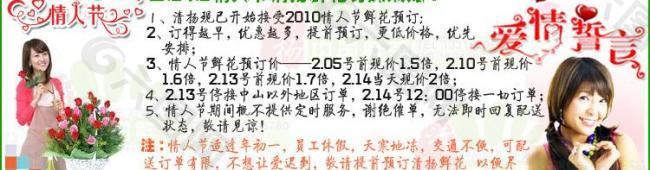 情人节
爱情誓言
1、清扬现已开始接受2010情人节鲜花预订;
2、订得越早,优惠越多,提前预订,更低价格,优先
安排;
3、情人节鲜花预订价——2.05号首现价1.5倍,2.10号首现价
1.6倍,2.13号首现价1.7倍,2.14当天现价2倍;
4、2.13号停接中山以外地区订单,2.14号12:00停接一切订单;
5、情人节期间概不提供定时服务,谢绝催单,无法即时回复配送
状态,敬请见谅!
注:情人节适逢年初一,员工休假,天寒地冻,交通不便,可配
送订单有限,不想让爱迟到,敬请提前预订清扬鲜花 以便界